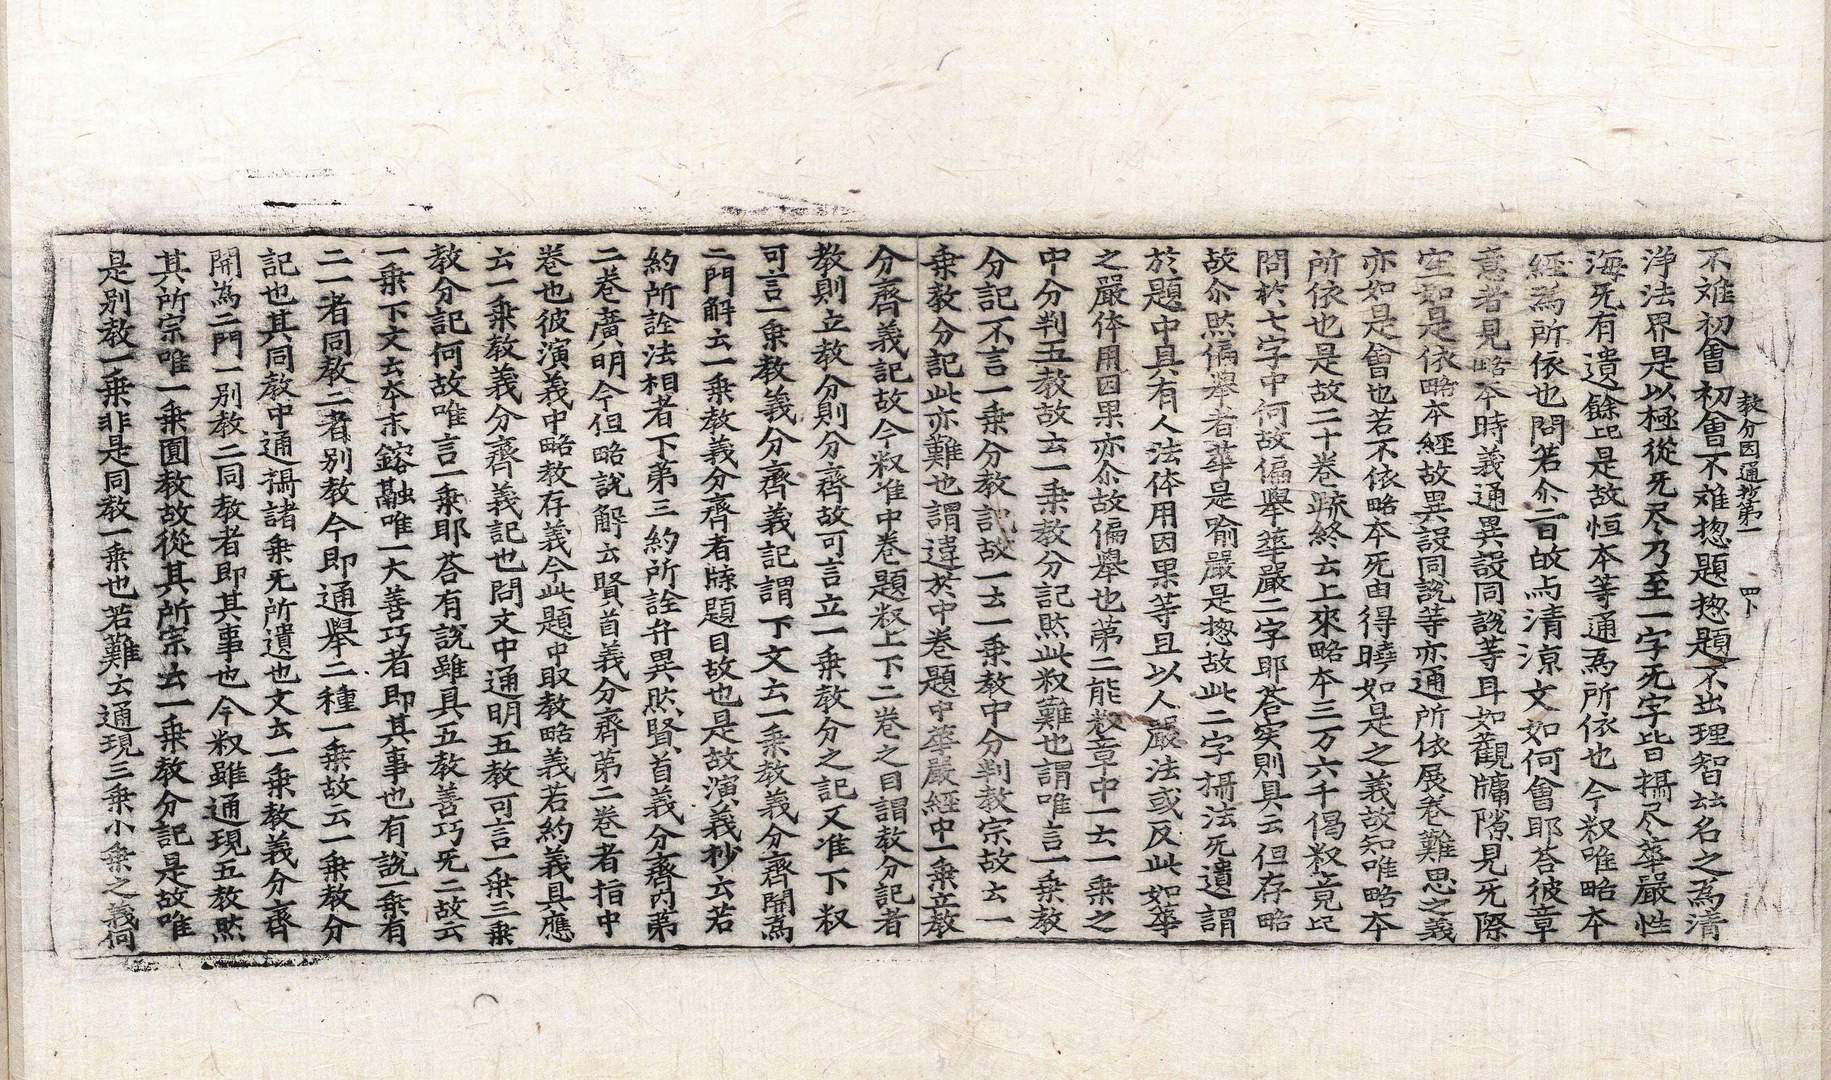 教分因通抄第一　四下
不难初會初會不难揔題揔題不出理智故名之爲清
淨法界是以極從旡尽乃至一字旡字皆攝尽華嚴性
海旡有遺餘此是故恒本等通爲所依也今叙唯略本
經爲所依也問若尒二百故与清涼文如何會耶荅彼章
意者見略本時義通異設同說等耳如觀牖隙見旡際
空如是依略本經故異設同說等亦通所依展卷難思之義
亦如是會也若不依略本旡由得曉如是之義故知唯略本
所依也是故二十卷䟽終云上來略本三万六千偈叙竟此
問於七字中何故偏舉華嚴二字耶荅实則具云但存略
故尒然偏舉者華是喻嚴是揔故此二字攝法旡遺謂
於題中具有人法体用因果等且以人嚴法或反此如華
之嚴体用因果亦尒故偏舉也第二能叙章中一云一乗之
中分判五教故云一乗教分記然此叙難也謂唯言一乗教
分記不言一乗分教記故一云一乗教中分判教宗故云一
乗教分記此亦難也謂違於中卷題中華嚴經中一乗立教
分齊義記故今叙准中卷題叙上下二卷之目謂教分記者
教則立教分則分齊故可言立一乗教分之記又准下叙
可言一乗教義分齊義記謂下文云一乗教義分齊開爲
二門解云一乗教義分齊者牒題目故也是故演義抄云若
約所詮法相者下第三約所詮弁異然賢首義分齊內第
二卷廣明今但略說解云賢首義分齊第二卷者指中
卷也彼演義中略教存義今此題中取教略義若約義具應
云一乗教義分齊義記也問文中通明五教可言一乗三乗
教分記何故唯言一乗耶荅有說雖具五教善巧旡二故云
一乗下文云本末鎔融唯一大善巧者即其事也有說一乗有
二一者同教二者別教今即通舉二種一乗故云一乗教分
記也其同教中通攝諸乗旡所遺也文云一乗教義分齊
開為二門一別教二同教者即其事也今叙雖通現五教然
其所宗唯一乗圓教故從其所宗云一乗教分記是故唯
是別教一乗非是同教一乗也若難云通現三乗小乗之義何